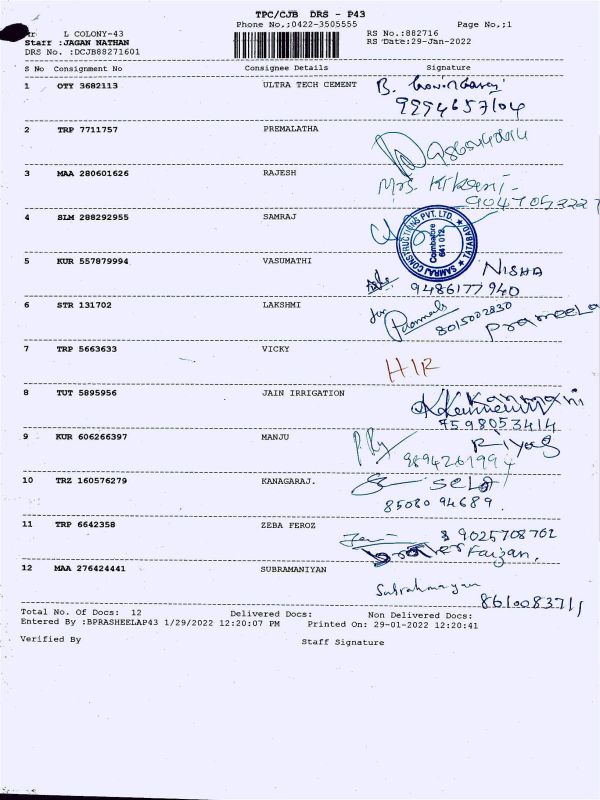 TPC/CJB DRS - P43
Phone No,:0422-3505555 Page No,:1
L COLONY-43 RS No.:882716
Staff :JAGAN NATHAN RS Date:29-Jan-2022
DRS No. :DCJB88271601
S No Consignment No Consignee Details Signature
1 OTY 3682113 ULTRA TECH CEMENT B.
9994657104
2 TRP 7711757 PREMALATHA
3 MAA 280601626 RAJESH Mrs.
4 SLM 288292955 SAMRAJ
SAMRAJ CONSTRUCTIONS PVT. LTD. ★ TATABAD ★
Coimbatore
641 012
5 KUR 557879994 VASUMATHI NISHA
9486177940
6 STR 131702 LAKSHMI
8015002830 Prameela
7 TRP 5663633 VICKY HIR
8 TUT 5895956 JAIN IRRIGATION Kanmani
7598053414
9 KUR 606266397 MANJU Riyas
9894261994
10 TRZ 160576279 KANAGARAJ. SELVI
85080 94689.
11 TRP 6642358 ZEBA FEROZ 9025708762
brother Faizan.
12 MAA 276424441 SUBRAMANIYAN
Subrahmanyan
8610083711
Total No. Of Docs: 12 Delivered Docs: Non Delivered Docs:
Entered By :BPRASHEELAP43 1/29/2022 12:20:07 PM Printed On: 29-01-2022 12:20:41
Verified By Staff Signature